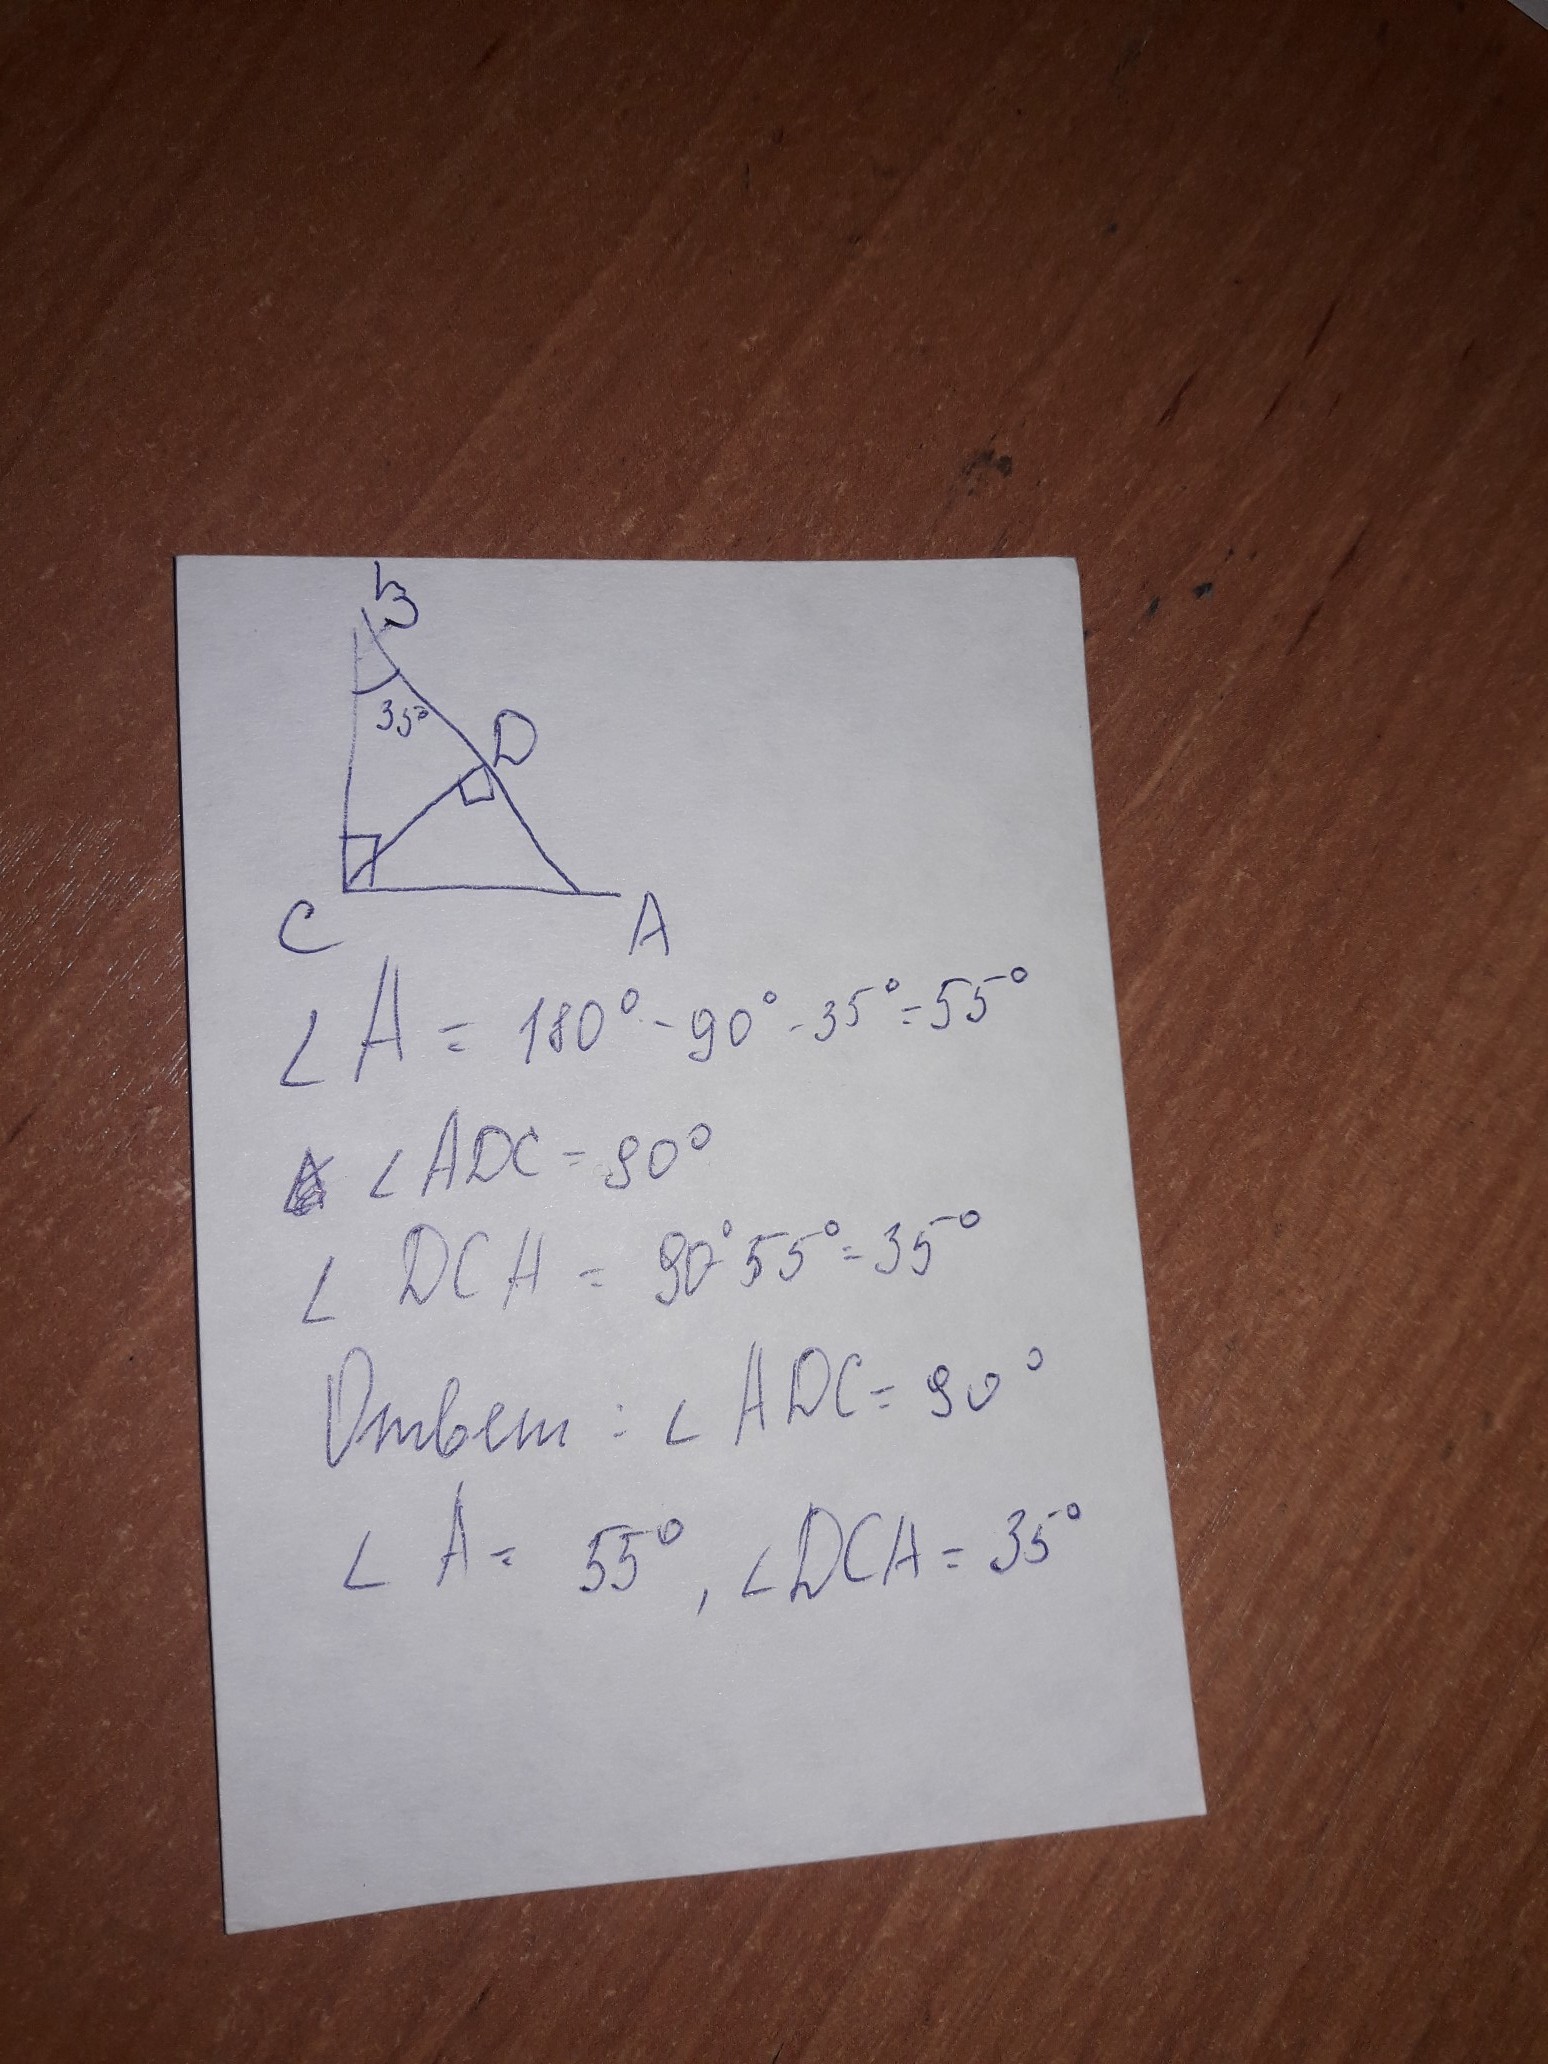 B
35°
D
C
A
∠A = 180° - 90° - 35° = 55°
∠ADC = 90°
∠DCA = 90°-55° = 35°
Ответ: ∠ADC = 90°
∠A = 55°, ∠DCA = 35°